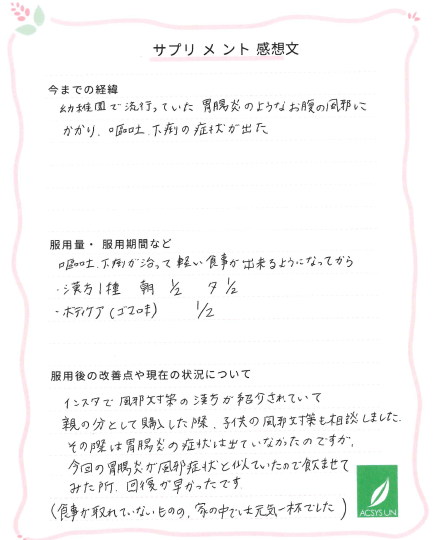 サプリメント感想文
今までの経緯
幼稚園で流行っていた胃腸炎のようなお腹の風邪に
かかり、嘔吐、下痢の症状が出た
服用量・服用期間など
嘔吐、下痢が治って軽い食事が出来るようになってから
・漢方1種 朝 1/2 夕 1/2
・ボディケア(ゴマロ味) 1/2
服用後の改善点や現在の状況について
インスタで風邪対策の漢方が紹介されていて
親の分として購入した際、子供の風邪対策も相談しました。
その際は胃腸炎の症状は出ていなかったのですが、
今回の胃腸炎が風邪症状と似ていたので飲ませて
みた所、回復が早かったです
(食事が取れていないものの、家の中では元気一杯でした)
ACSYS UN